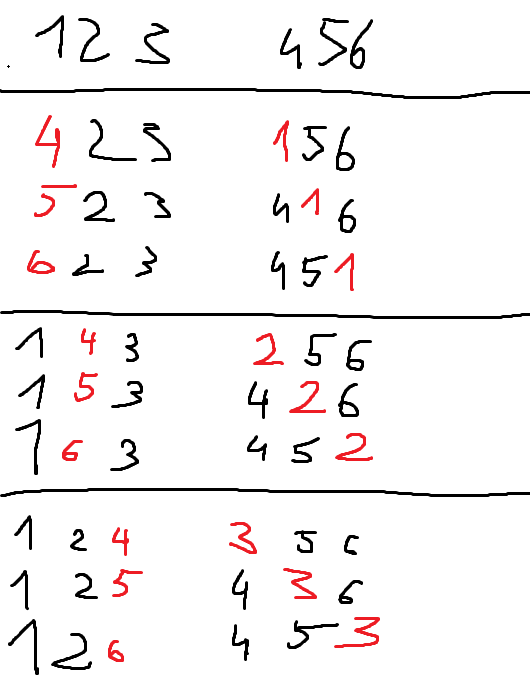 1 2 3 4 5 6
4 2 3 1 5 6
5 2 3 4 1 6
6 2 3 4 5 1
1 4 3 2 5 6
1 5 3 4 2 6
1 6 3 4 5 2
1 2 4 3 5 6
1 2 5 4 3 6
1 2 6 4 5 3